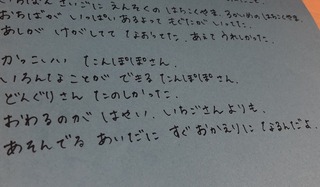 おちばが いっぱい あるよって もぐたが いってた。
あしが けがしてて なおってた。あえて うれしかった。
かっこいい たんぽぽさん。
いろんなことが できる たんぽぽさん。
どんぐりさん たのしかった。
おわるのが はやい。いちごさんよりも。
あそんでる あいだに すぐ おかえりに なるんだよ。